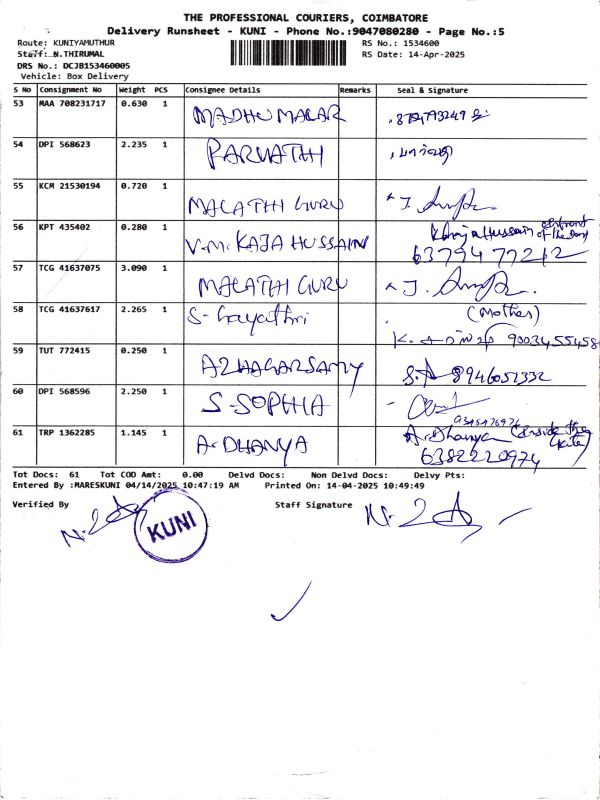 THE PROFESSIONAL COURIERS, COIMBATORE
Delivery Runsheet - KUNI - Phone No.:9047080280 - Page No.:5
Route: KUNIYAMUTHUR RS No.: 1534600
Staff: N.THIRUMAL RS Date: 14-Apr-2025
DRS No.: DCJB153460005
Vehicle: Box Delivery
S No Consignment No Weight PCS Consignee Details Remarks Seal & Signature
53 MAA 708231717 0.630 1 MADHU MALAR
54 DPI 568623 2.235 1 PARVATHI
55 KCM 21530194 0.720 1 MALATHI GURU
56 KPT 435402 0.280 1 V.M. KAJA HUSSAIN Hussain
63794 77212
57 TCG 41637075 3.090 1 MALATHI GURU
58 TCG 41637617 2.265 1 S-Gayathri (Mother)
9003455458
59 TUT 772415 0.250 1 AZHAGARSAMY 8946051332
60 DPI 568596 2.250 1 S-SOPHIA
61 TRP 1362285 1.145 1 A.DHANYA A.Dhanya (Inside the
Gate)
6382220974
Tot Docs: 61 Tot COD Amt: 0.00 Delvd Docs: Non Delvd Docs: Delvy Pts:
Entered By :MARESKUNI 04/14/2025 10:47:19 AM Printed On: 14-04-2025 10:49:49
Verified By Staff Signature
KUNI